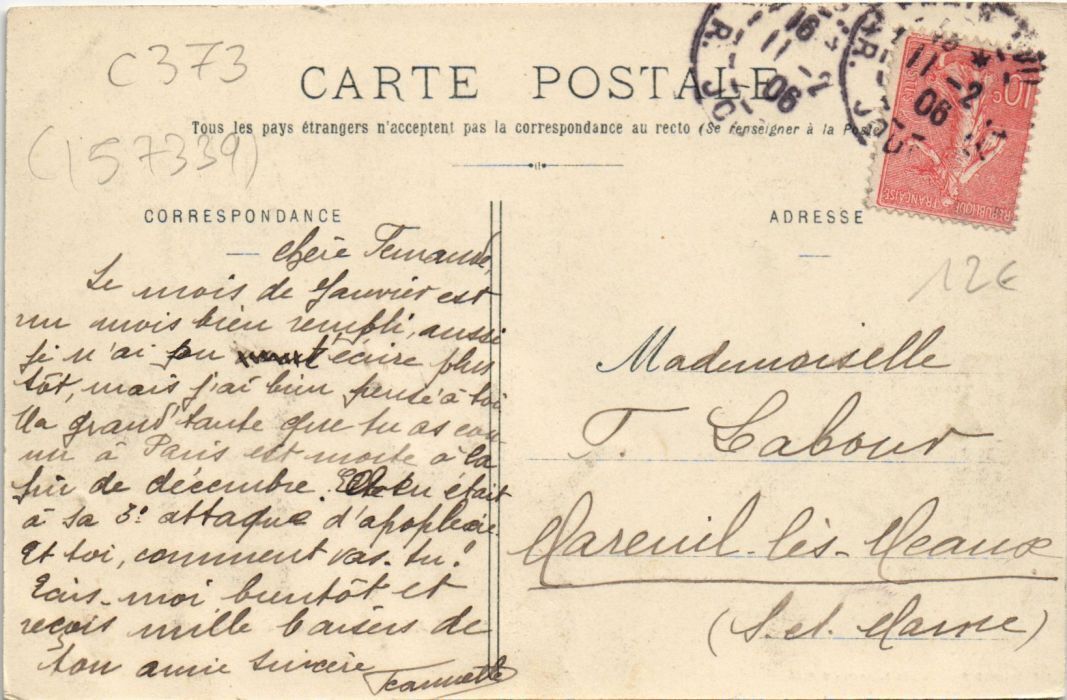 C373
(157339)
CARTE POSTALE
Tous les pays étrangers n'acceptent pas la correspondance au recto (Se renseigner à la Poste)
CORRESPONDANCE
Chère Fernande,
Le mois de Janvier est
un mois bien rempli, aussi
je n'ai pu t'écrire plus
tôt, mais j'ai bien pensé à toi
Ma grand'tante que tu as con
nu à Paris est morte à la
fin de décembre. Elle en était
à sa 3e attaque d'apoplexie.
Et toi, comment vas-tu!
Ecris-moi bientôt et
reçois mille baisers de
ton amie sincère
Jeannette
ADRESSE
16 11 -2 06
11 -2 06
10c
REPUBLIQUE FRANÇAISE
POSTES
12€
Mademoiselle
F. Labour
Mareuil-lès-Meaux
(S. et. Marne)